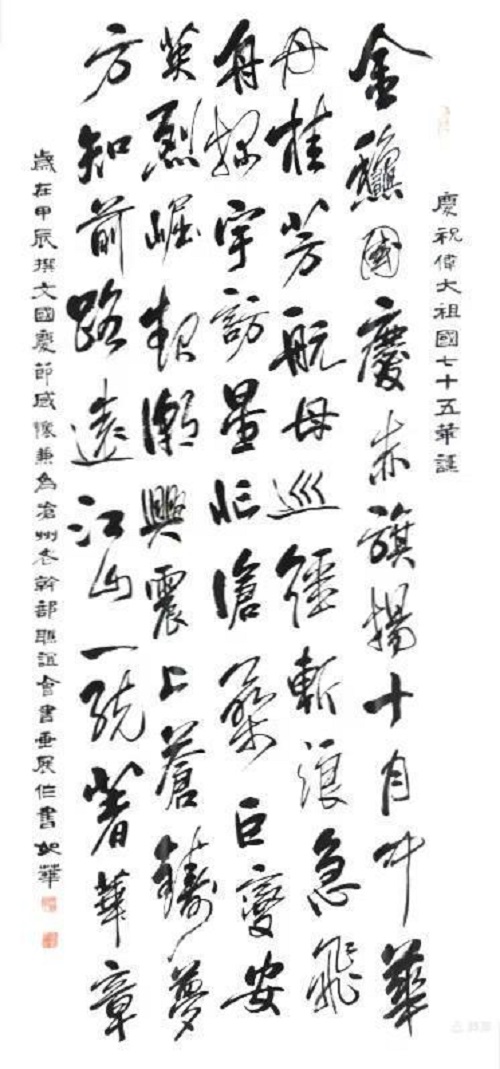 慶祝偉大祖國七十五華誕
金龝國慶赤旗揚十月中華
丹桂芳航母巡經斬浪急飛
舟探宇訪星忙滄桑巨變安
英烈崛起潮興震上蒼鑄夢
方知前路遠江山一統著華章
歲在甲辰撰文國慶節感懷兼為滄州老幹部聯誼會書畫展作書華